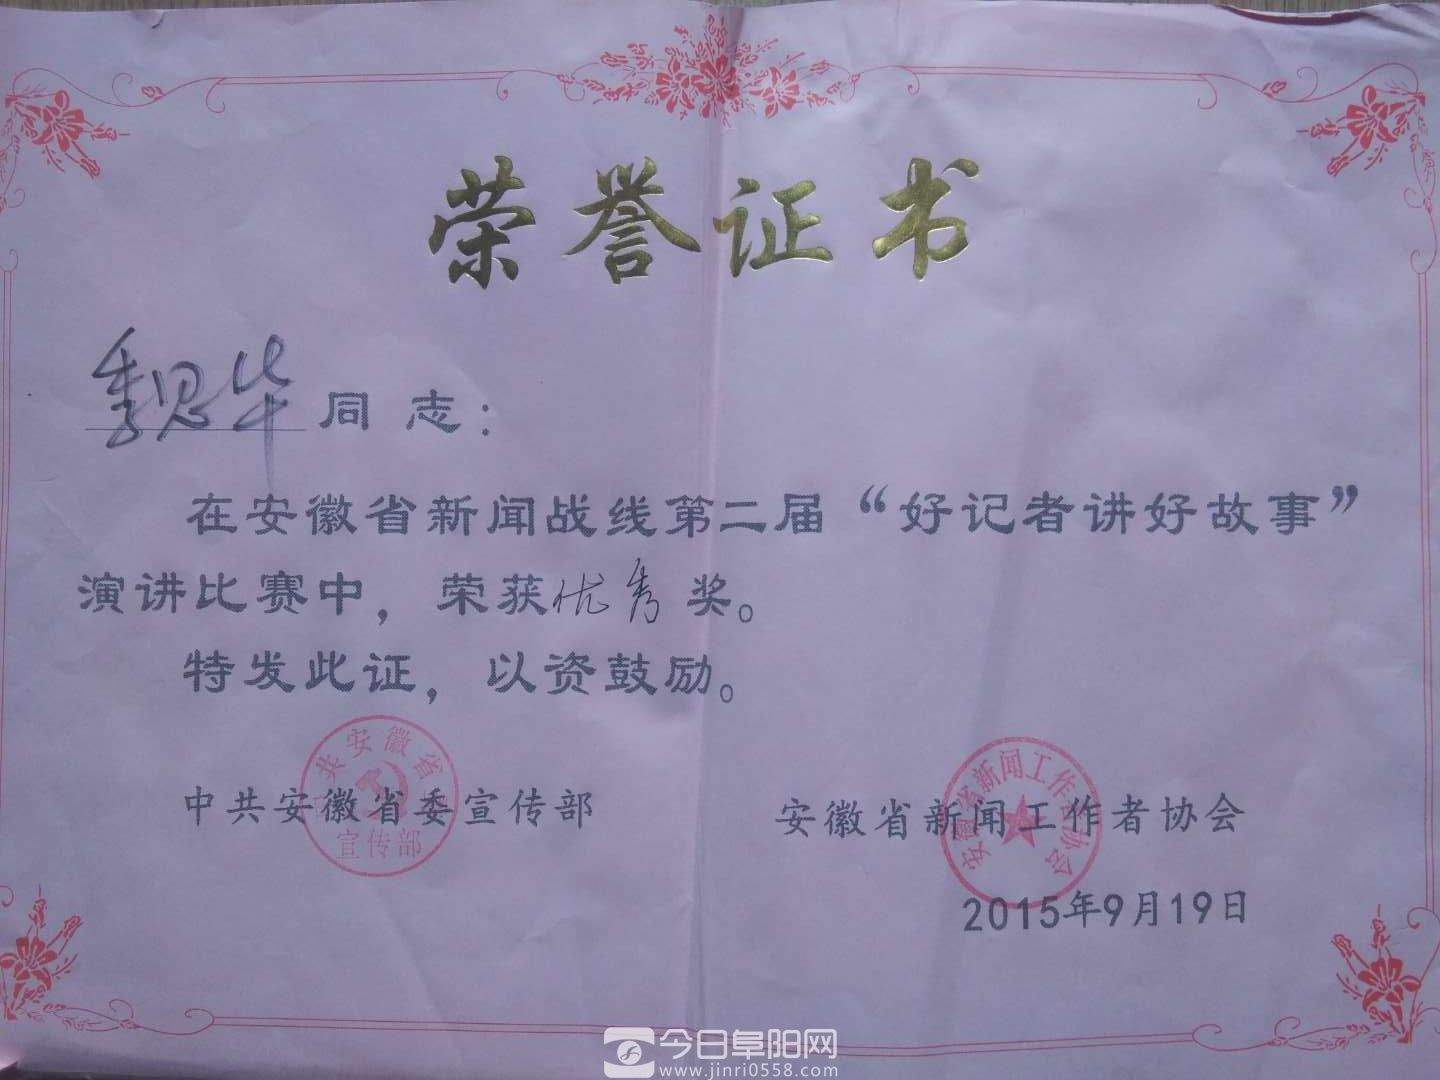 荣誉证书
同志：
在安徽省新闻战线第二届“好记者讲好故事”
演讲比赛中，荣获优秀奖。
特发此证，以资鼓励。
中共安徽省委宣传部
安徽省新闻工作者协会
共安徽省
宣传部
安徽省新闻工作者协会
2015年9月19日
今日阜阳网
www.jinri0558.com